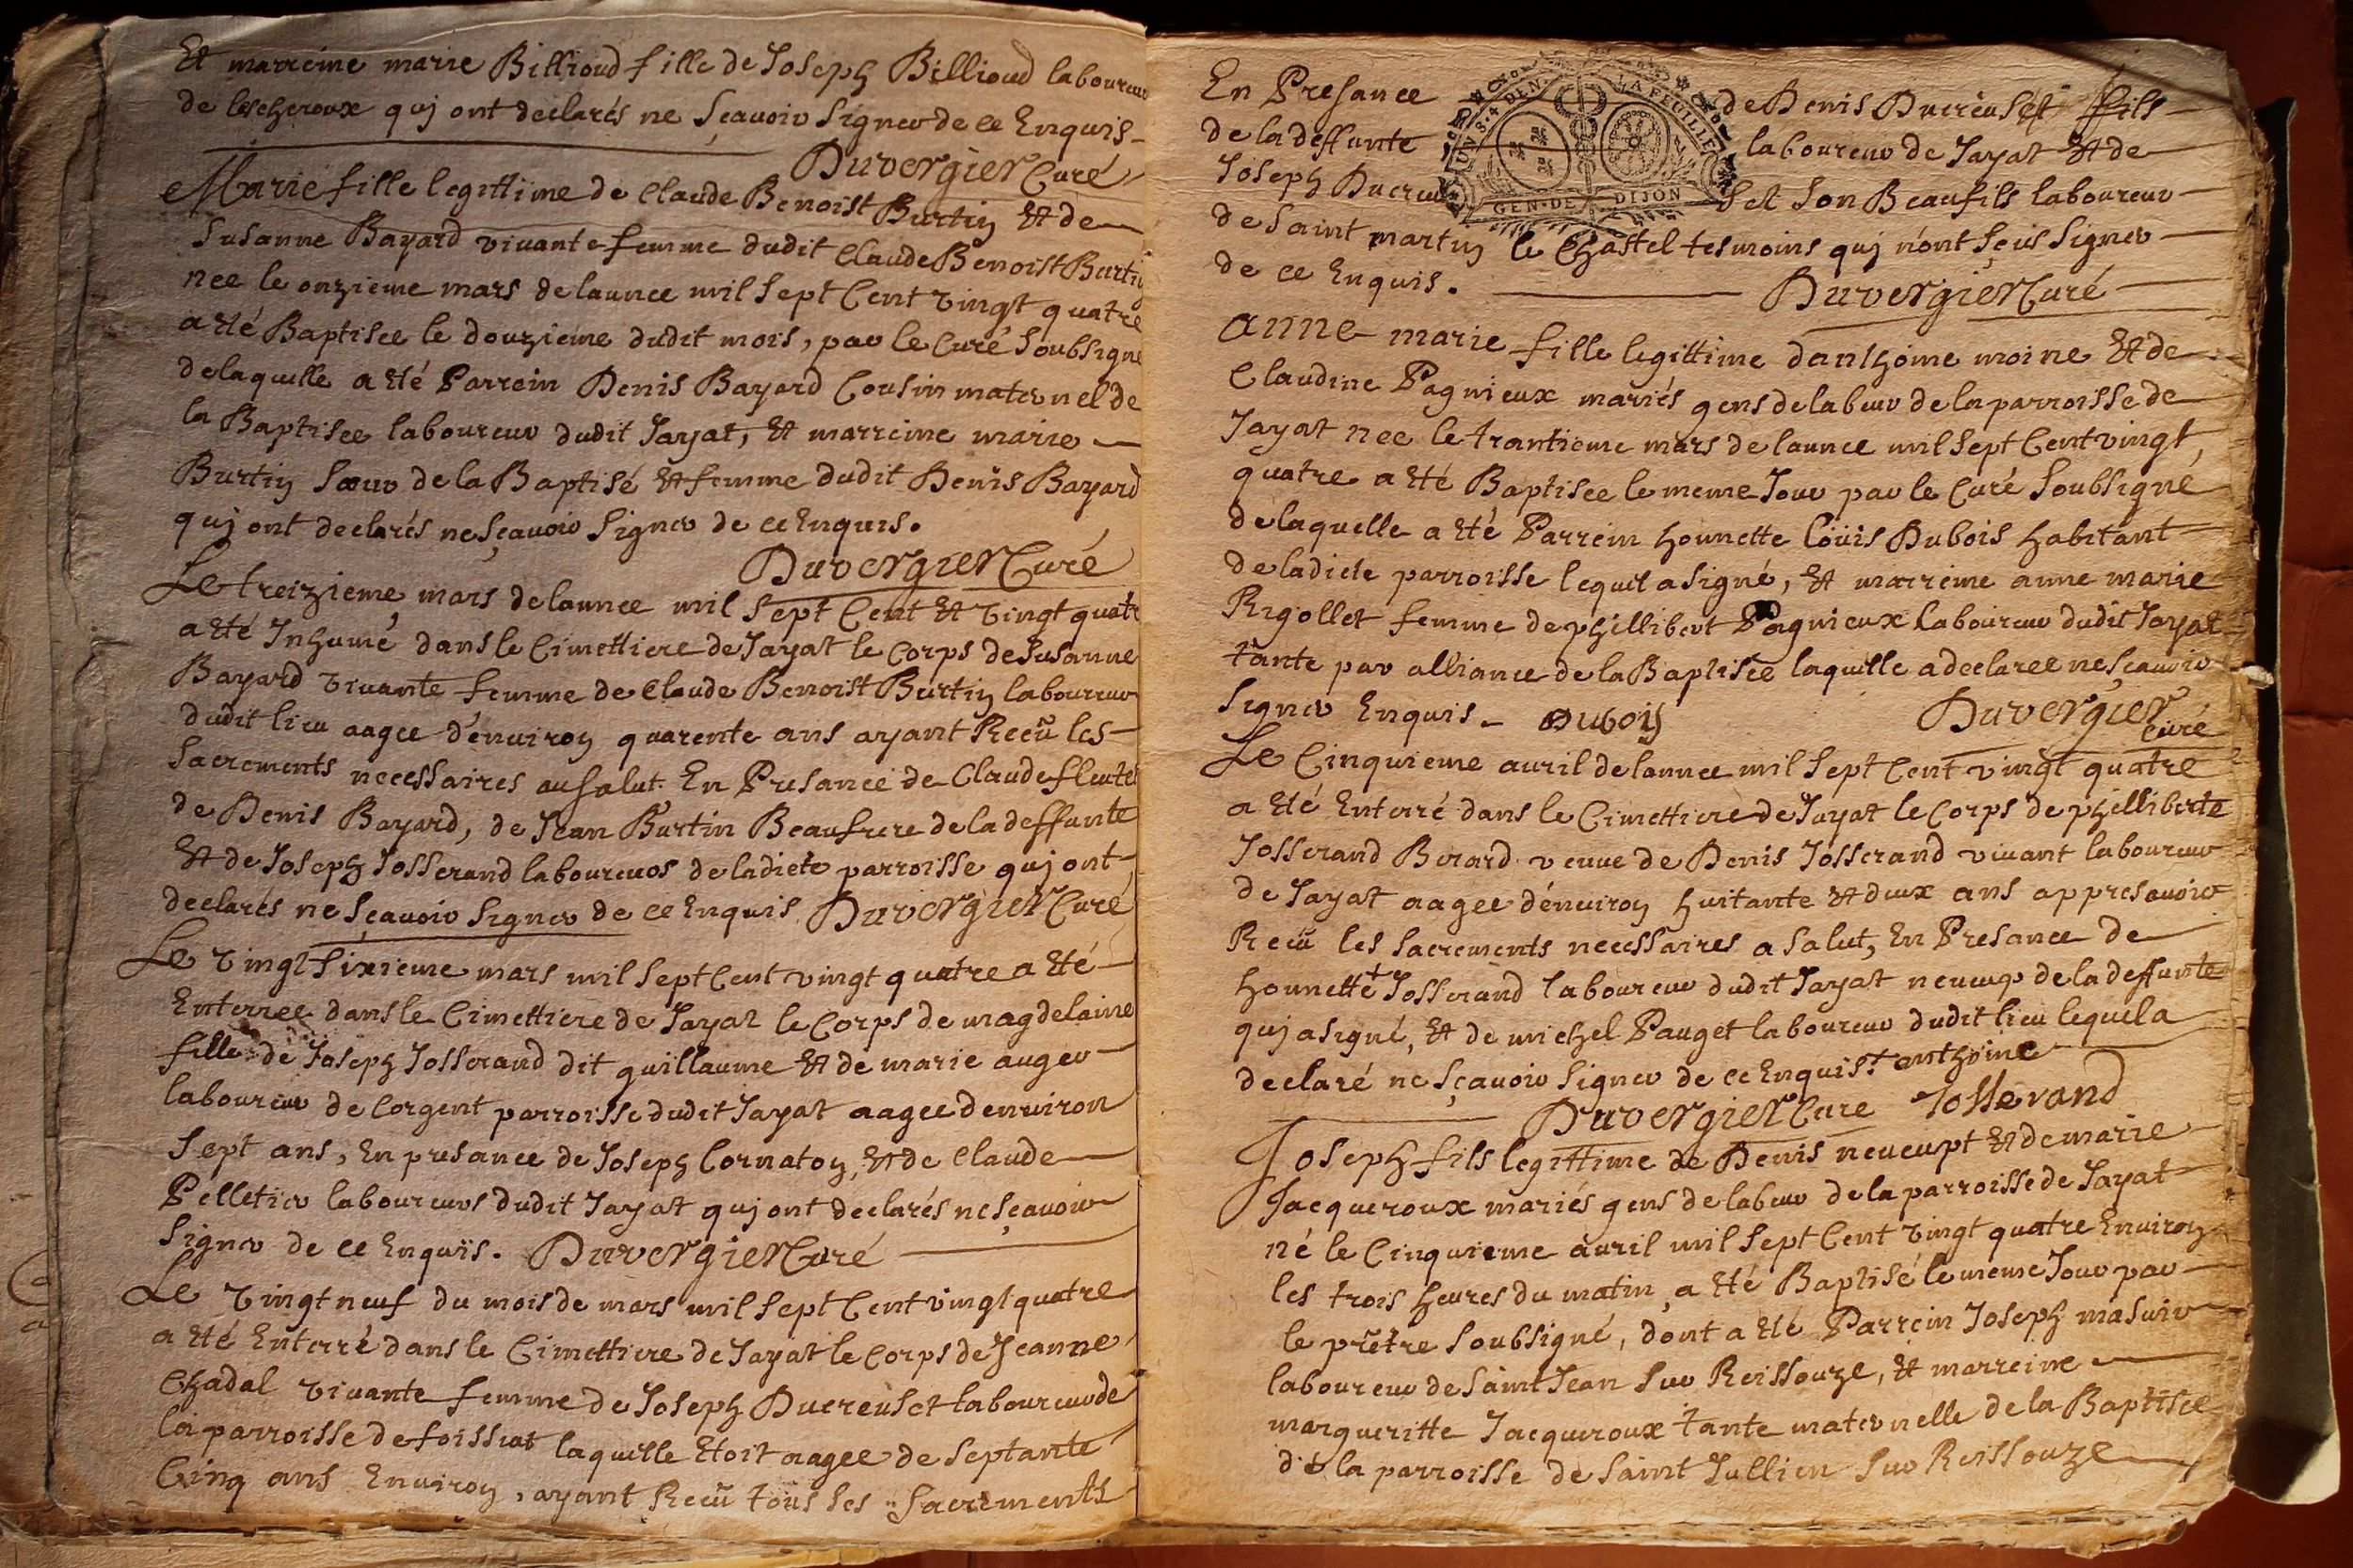 Et marreine marie Billioud fille de Joseph Billioud laboureur
de lescheroux quj ont declarés ne sçavoir signer de ce Enquis
Duvergier Curé
Marie fille legittime de Claude Benoist Burtin Et de
Susanne Bayard vivante femme dudit Claude Benoist Burtin
nee le onzieme mars de lannee mil sept Cent vingt quatre
a été Baptisee le douzieme dudit mois, par le Curé soubsigné
de laquelle a été Parrein Denis Bayard Cousin maternel de
la Baptisee laboureur dudit Jayat, Et marreine marie
Burtin sœur de la Baptisé et femme dudit Denis Bayard
quj ont declarés ne sçavoir signer de ce Enquis.
Duvergier Curé
Le treizieme mars de lannee mil sept Cent Et vingt quatre
a été Inhumé dans le Cimettiere de Jayat le Corps de Susanne
Bayard vivante femme de Claude Benoist Burtin laboureur
dudit lieu aagee d'environ quarente ans ayant Receü les
Sacrements necessaires au salut. En Presance de Claude fleutet
de Denis Bayard, de Jean Burtin Beaufrere de la deffunte
Et de Joseph Josserand laboureurs de ladiete parroisse quj ont
declarés ne sçavoir signer de ce Enquis Duvergier Curé
Le vingt sixieme mars mil sept Cent vingt quatre a été
Enterree dans le Cimettiere de Jayat le Corps de magdelaine
fille de Joseph Josserand dit guillaume Et de marie auger
laboureur de Corgent parroisse dudit Jayat aagee denviron
sept ans, En presance de Joseph Cornaton, Et de Claude
Pelletier laboureurs dudit Jayat quj ont declarés ne sçavoir
signer de ce Enquis. Duvergier Curé
Le vingt neuf du mois de mars mil sept Cent vingt quatre
a été Enterré dans le Cimettiere de Jayat le Corps de Jeanne
Chadal vivante femme de Joseph Ducreuset laboureur de
la parroisse de foissiat laquelle Etoit aagee de septante
Cinq ans Environ, ayant Receü tous ses Sacrements
En Presance de Denis Ducreuset fils
de la deffunte laboureur de Jayat Et de
Joseph Ducreuset son Beaufils laboureur
UN S. 4 DEN. LA FEUILLE
GEN. DE DIJON
de Saint martin le Chastel tesmoins quj n'ont sçeüs signer
de ce Enquis. Duvergier Curé
anne marie fille legittime danthome moine Et de
Claudine Pagnieux mariés gens de labeur de la parroisse de
Jayat nee le trantieme mars de lannee mil sept Cent vingt,
quatre a été Baptisee le meme Jour par le Curé soubsigné
de laquelle a été Parrein honnette Loüis Dubois habitant
de ladiete parroisse lequel a signé, Et marreine anne marie
Rigollet femme de phillibert Pagnieux laboureur dudit Jayat
tante par alliance de la Baptisée laquelle a declaree ne sçavoir
signer Enquis. Dubois Duvergier
Curé
Le Cinquieme avril de lannee mil sept Cent vingt quatre
a été Enterré dans le Cimettiere de Jayat le Corps de phelliberte
Josserand Berard veuve de Denis Josserand vivant laboureur
de Jayat aagee d'environ huitante Et deux ans appres avoir
Receü les sacrements necessaires a salut, En Presance de
honnette + Josserand laboureur dudit Jayat neueup de la deffunte
quj a signé, Et de michel Pauget laboureur dudit lieu lequel a
declaré ne sçavoir signer de ce Enquis. + anthoine
Duvergier Cure Josserand
Joseph fils legittime de Denis neueupt Et de marie
Jacqueroux mariés gens de labeur de la parroisse de Jayat
né le Cinquieme avril mil sept Cent vingt quatre Environ
les trois heures du matin, a été Baptisé le meme Jour par
le prêtre soubsigné, dont a été Parrein Joseph masuir
laboureur de Saint Jean sur Reissouze, Et marreine
margueritte Jacqueroux tante maternelle de la Baptisee
de la parroisse de Saint Jullien sur Reissouze